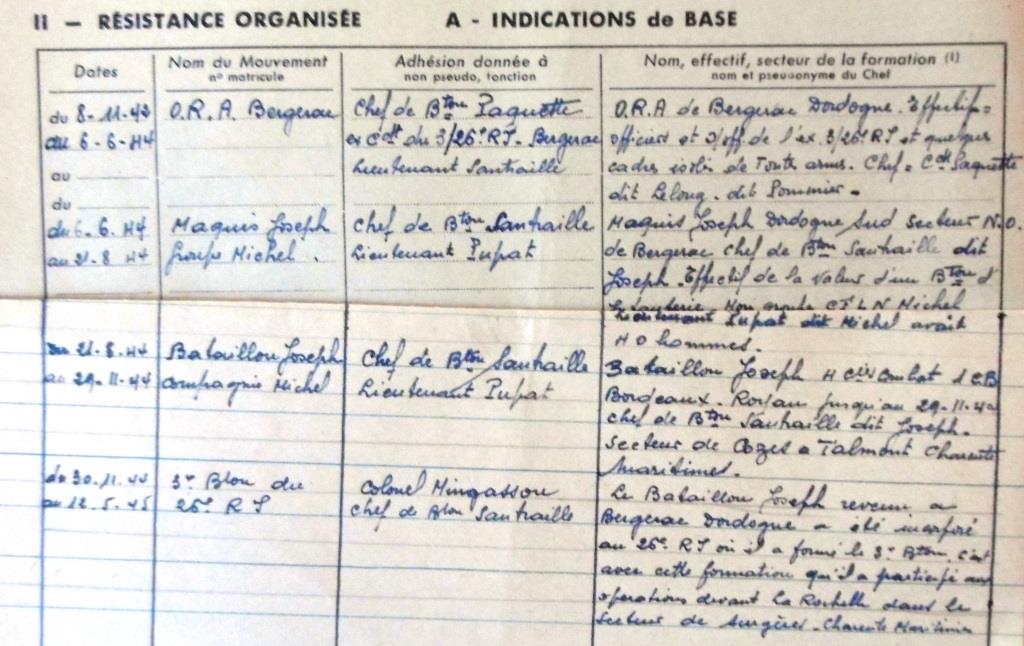 II — RÉSISTANCE ORGANISÉE A - INDICATIONS de BASE
Dates
Nom du Mouvement
n° matricule
Adhésion donnée à
non pseudo, fonction
Nom, effectif, secteur de la formation (1)
nom et pseudonyme du Chef
du 8-11-42
au 6-6-44
au
du
O.R.A. Bergerac
Chef de Bton Paquette
ex Cdt du 3/26e R.I. Bergerac
Lieutenant Santraille
O.R.A de Bergerac Dordogne. Effectif=
officiers et s/off. de l'ex. 3/26e RI et quelques
cadres isolés de Toute armes. Chef = Cdt Paquette
dit Lelong. dit Pommier.
du 6-6.44
au 21-8 44
Maquis Joseph
Groupe Michel.
Chef de Bton Santraille
Lieutenant Pupat
Maquis Joseph Dordogne Sud Secteur N.O.
de Bergerac Chef de Bton Santraille dit
Joseph. Effectif de la valeur d'un Bton d'
Mon groupe Michel
Lieutenant Pupat dit Michel avait
40 hommes.
du 21-8-44
au 29-11-44
Bataillon Joseph
Compagnie Michel
Chef de Bton Santraille
Lieutenant Pupat
Bataillon Joseph 4 Cies Combat 1 C.B
Bordeaux. Royan jusqu'au 29-11-44
Chef de Bton Santraille dit Joseph.
Secteur de Cozes a Talmont Charente
Maritimes.
du 30.11.44
au 12.5.45
3e Bton du
26e R I
Colonel Mingasson
Chef de Bton Santraille
Le Bataillon Joseph revenu a
Bergerac Dordogne a été incorporé
au 26e. RI où il a formé le 3e Bton c'est
avec cette formation qu'il a participé aux
operations devant La Rochelle dans le
Secteur de Surgères - Charente Maritimes